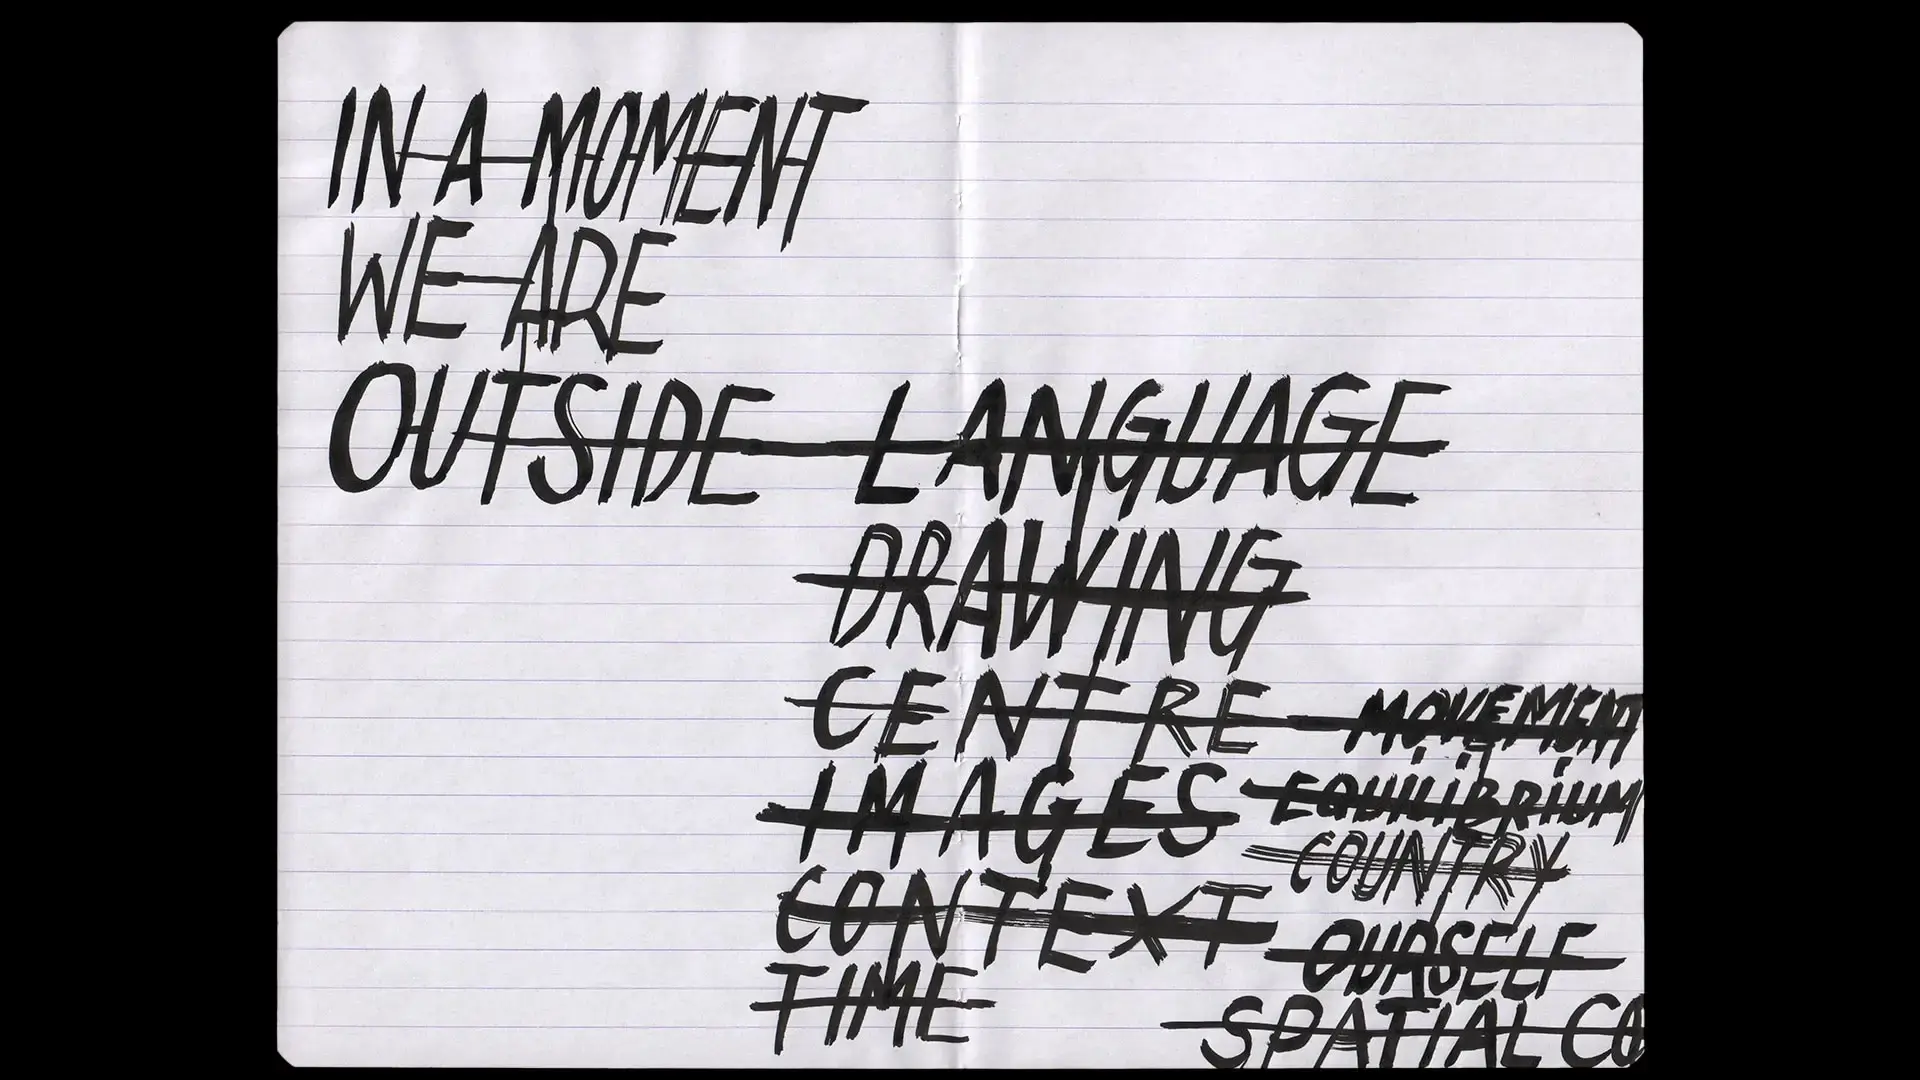 IN A MOMENT
WE ARE
OUTSIDE LANGUAGE
DRAWING
CENTRE
IMAGES
CONTEXT
TIME
MOVEMENT
EQUILIBRIUM
COUNTRY
OURSELF
SPATIAL CO